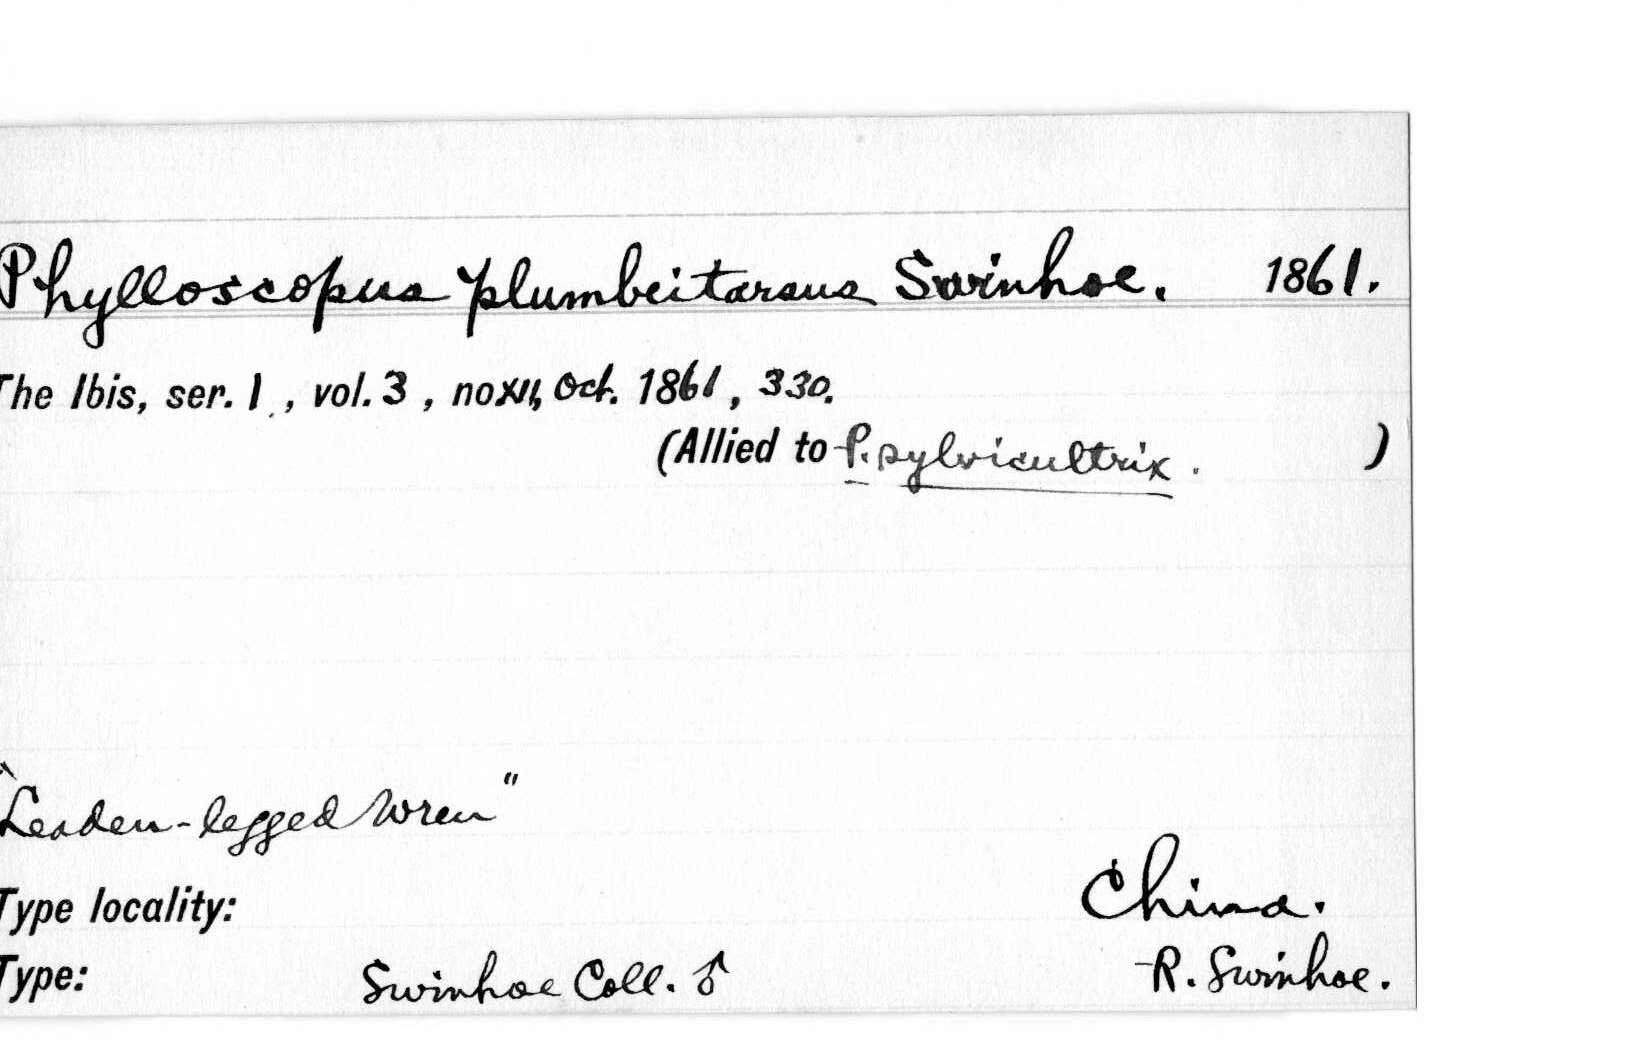 Phylloscopus plumbeitarsus Swinhoe. 1861.
The Ibis, ser. 1, vol. 3, no XII, Oct. 1861, 330.
(Allied to P. sylvicultrix. )
"Leaden-legged Wren"
Type locality: China.
Type: Swinhoe Coll. ♂ R. Swinhoe.